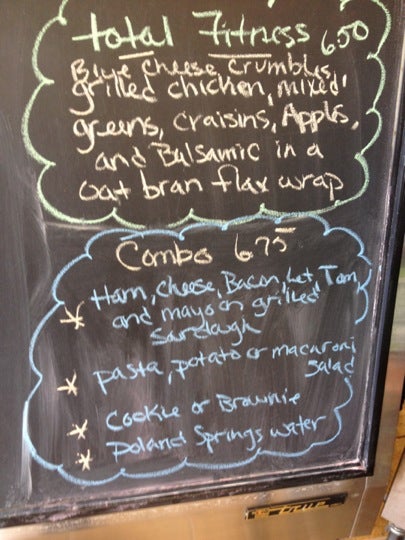 total Fitness 6.50
Blue cheese crumbles,
grilled chicken, mixed
greens, craisins, Apples,
and Balsamic in a
oat bran flax wrap
Combo 6.75
* Ham, cheese, Bacon, Let, Tom,
and mayo on grilled
sardough
* pasta, potato or macaroni
salad
* Cookie or Brownie
* Poland Springs water